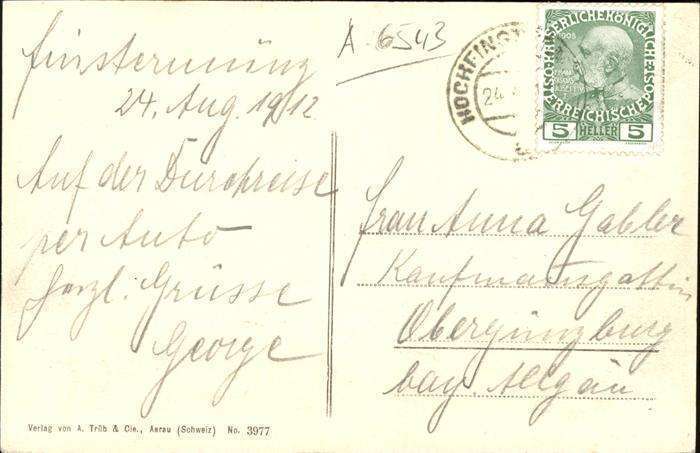 Finstermünz
24. Aug. 1912
Auf der Durchreise
per Auto
herzl. Grüsse
George
Verlag von A. Trüb & Cie., Aarau (Schweiz) No. 3977
A 6543
HOCHFINST
24
KAISERLICHE KÖNIGLICHE
1908
REICHISCHE
5 HELLER 5
Frau Anna Gabler
Kaufmannsgattin
Obergünzburg
bay. Allgäu